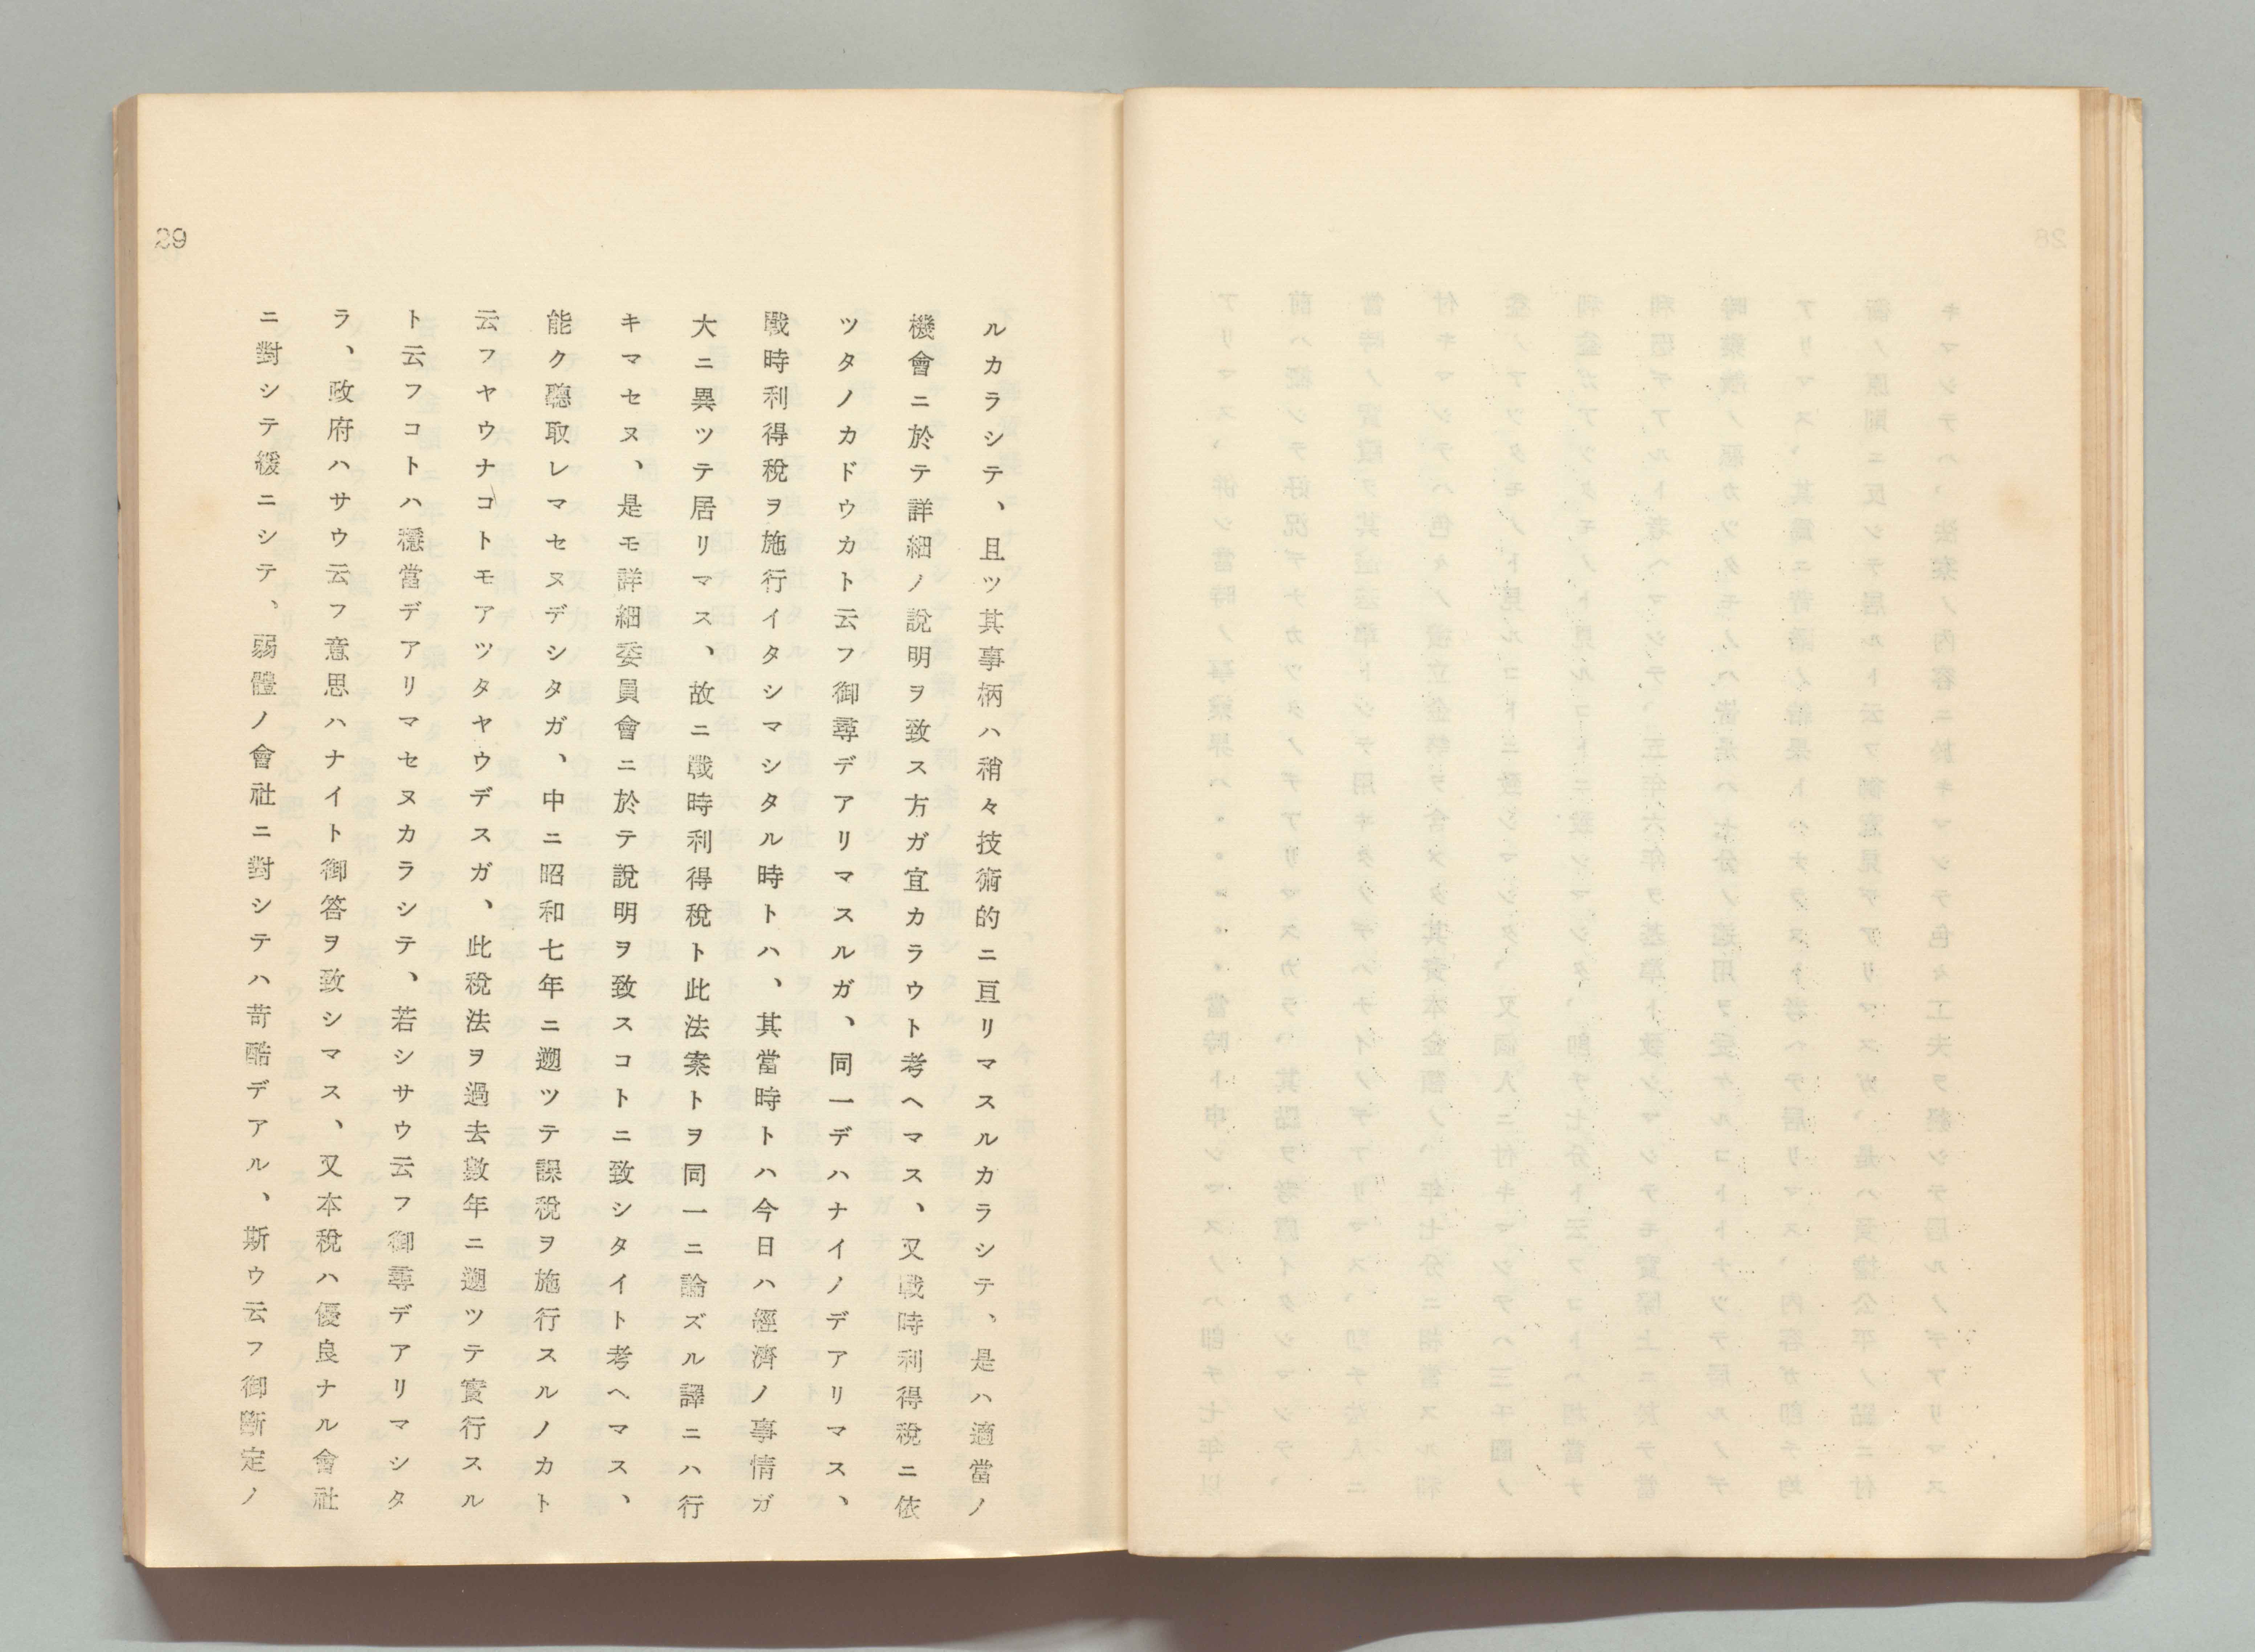 29
ルカラシテ、且ツ其事柄ハ稍々技術的ニ亘リマスルカラシテ、是ハ適當ノ
機會ニ於テ詳細ノ說明ヲ致ス方ガ宜カラウト考ヘマス、又戰時利得稅ニ依
ツタノカドウカト云フ御尋デアリマスルガ、同一デハナイノデアリマス、
戰時利得稅ヲ施行イタシマシタル時トハ、其當時トハ今日ハ經濟ノ事情ガ
大ニ異ツテ居リマス、故ニ戰時利得稅ト此法案トヲ同一ニ論ズル譯ニハ行
キマセヌ、是モ詳細委員會ニ於テ說明ヲ致スコトニ致シタイト考ヘマス、
能ク聽取レマセヌデシタガ、中ニ昭和七年ニ遡ツテ課稅ヲ施行スルノカト
云フヤウナコトモアツタヤウデスガ、此稅法ヲ過去數年ニ遡ツテ實行スル
ト云フコトハ穩當デアリマセヌカラシテ、若シサウ云フ御尋デアリマシタ
ラ、政府ハサウ云フ意思ハナイト御答ヲ致シマス、又本稅ハ優良ナル會社
ニ對シテ緩ニシテ、弱體ノ會社ニ對シテハ苛酷デアル、斯ウ云フ御斷定ノ